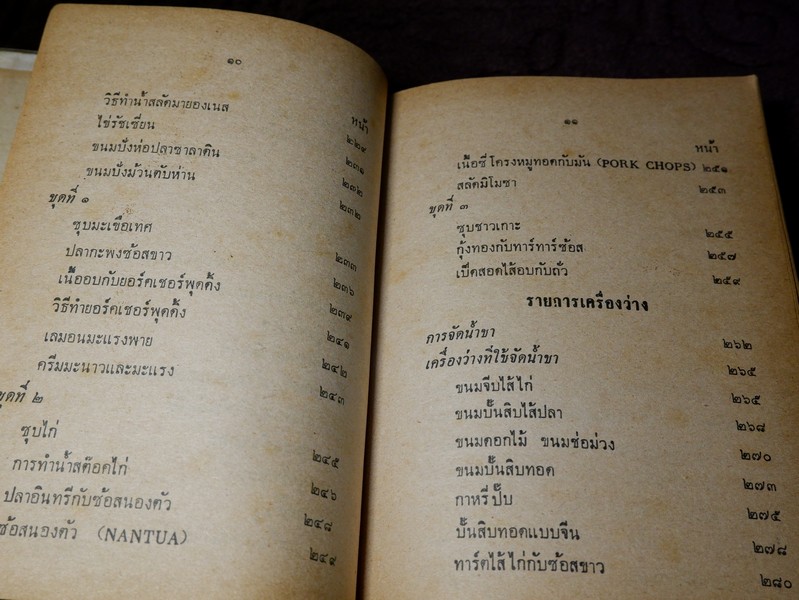 ๑๐
หน้า
วิธีทำน้ำสลัดมายองเนส ๒๒๙
ไข่รัซเซี่ยน ๒๓๑
ขนมปังห่อปลาซาลาดิน ๒๓๒
ขนมปังม้วนตับห่าน ๒๓๒
ชุดที่ ๑
ซุบมะเขือเทศ ๒๓๓
ปลากะพงซ้อสขาว ๒๓๖
เนื้ออบกับยอร์คเชอร์พุดดิ้ง ๒๓๙
วิธีทำยอร์คเชอร์พุดดิ้ง ๒๔๑
เลมอนมะแรงพาย ๒๔๒
ครีมมะนาวและมะแรง ๒๔๓
ชุดที่ ๒
ซุบไก่ ๒๔๕
การทำน้ำสต๊อคไก่ ๒๔๖
ปลาอินทรีกับซ้อสนองตัว ๒๔๘
ซ้อสนองตัว (NANTUA) ๒๔๙
๑๑
หน้า
เนื้อซี่โครงหมูทอดกับมัน (PORK CHOPS) ๒๕๑
สลัดมิโมซา ๒๕๓
ชุดที่ ๓
ซุบชาวเกาะ ๒๕๕
กุ้งทองกับทาร์ทาร์ซ้อส ๒๕๗
เป็ดสอดไส้อบกับถั่ว ๒๕๙
รายการเครื่องว่าง
การจัดน้ำชา ๒๖๒
เครื่องว่างที่ใช้จัดน้ำชา ๒๖๕
ขนมจีบไส้ไก่ ๒๖๕
ขนมปั้นสิบไส้ปลา ๒๖๘
ขนมดอกไม้ ขนมช่อม่วง ๒๗๐
ขนมปั้นสิบทอด ๒๗๓
กาหรี่ปั๊บ ๒๗๕
ปั้นสิบทอดแบบจีน ๒๗๘
ทาร์ตไส้ไก่กับซ้อสขาว ๒๘๐